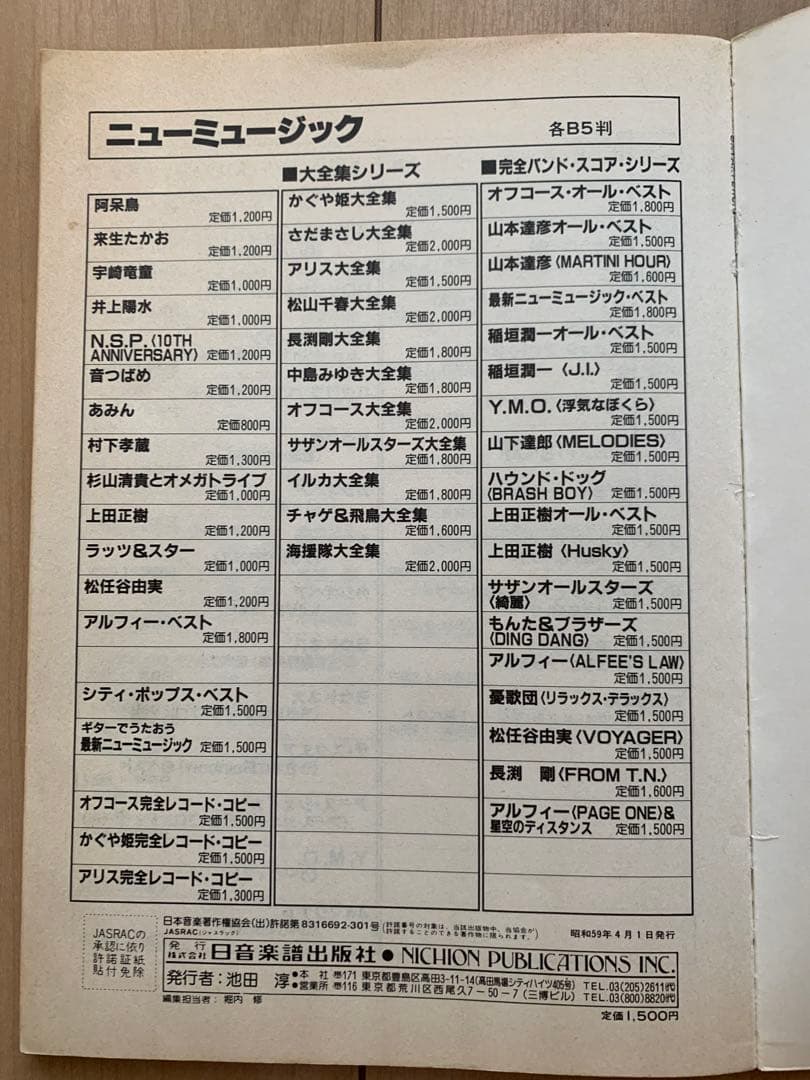 ニューミュージック 各B5判
阿呆鳥
定価1,200円
来生たかお
定価1,200円
宇崎竜童
定価1,000円
井上陽水
定価1,000円
N.S.P.〈10TH
ANNIVERSARY〉 定価1,200円
音つばめ
定価1,200円
あみん
定価800円
村下孝蔵
定価1,300円
杉山清貴とオメガトライブ
定価1,000円
上田正樹
定価1,200円
ラッツ&スター
定価1,000円
松任谷由実
定価1,200円
アルフィー・ベスト
定価1,800円
シティ・ポップス・ベスト
定価1,500円
ギターでうたおう
最新ニューミュージック 定価1,500円
オフコース完全レコード・コピー
定価1,500円
かぐや姫完全レコード・コピー
定価1,500円
アリス完全レコード・コピー
定価1,300円
■大全集シリーズ
かぐや姫大全集
定価1,500円
さだまさし大全集
定価2,000円
アリス大全集
定価1,500円
松山千春大全集
定価2,000円
長渕剛大全集
定価1,800円
中島みゆき大全集
定価1,800円
オフコース大全集
定価2,000円
サザンオールスターズ大全集
定価1,800円
イルカ大全集
定価1,800円
チャゲ&飛鳥大全集
定価1,600円
海援隊大全集
定価2,000円
■完全バンド・スコア・シリーズ
オフコース・オール・ベスト
定価1,800円
山本達彦オール・ベスト
定価1,500円
山本達彦〈MARTINI HOUR〉
定価1,600円
最新ニューミュージック・ベスト
定価1,800円
稲垣潤一オール・ベスト
定価1,500円
稲垣潤一〈J.I.〉
定価1,500円
Y.M.O.〈浮気なぼくら〉
定価1,500円
山下達郎〈MELODIES〉
定価1,500円
ハウンド・ドッグ
〈BRASH BOY〉 定価1,500円
上田正樹オール・ベスト
定価1,500円
上田正樹〈Husky〉
定価1,500円
サザンオールスターズ
〈綺麗〉 定価1,500円
もんた&ブラザーズ
〈DING DANG〉 定価1,500円
アルフィー〈ALFEE'S LAW〉
定価1,500円
憂歌団〈リラックス・デラックス〉
定価1,500円
松任谷由実〈VOYAGER〉
定価1,500円
長渕 剛〈FROM T.N.〉
定価1,600円
アルフィー〈PAGE ONE〉&
星空のディスタンス 定価1,500円
JASRACの
承認に依り
許諾証紙
貼付免除
日本音楽著作権協会(出)許諾第8316692-301号 (許諾番号の対象は、当該出版物中、当協会が
JASRAC(ジャスラック) 許諾することのできる著作物に限られます。)
昭和59年4月1日発行
発行
株式会社 日音楽譜出版社●NICHION PUBLICATIONS INC.
発行者:池田 淳
●本社 〒171 東京都豊島区高田3-11-14(高田馬場シティハイツ405号) TEL.03(205)2611㈹
●営業所 〒116 東京都荒川区西尾久7-50-7(三博ビル) TEL.03(800)8820㈹
編集担当者:堀内 修
定価1,500円